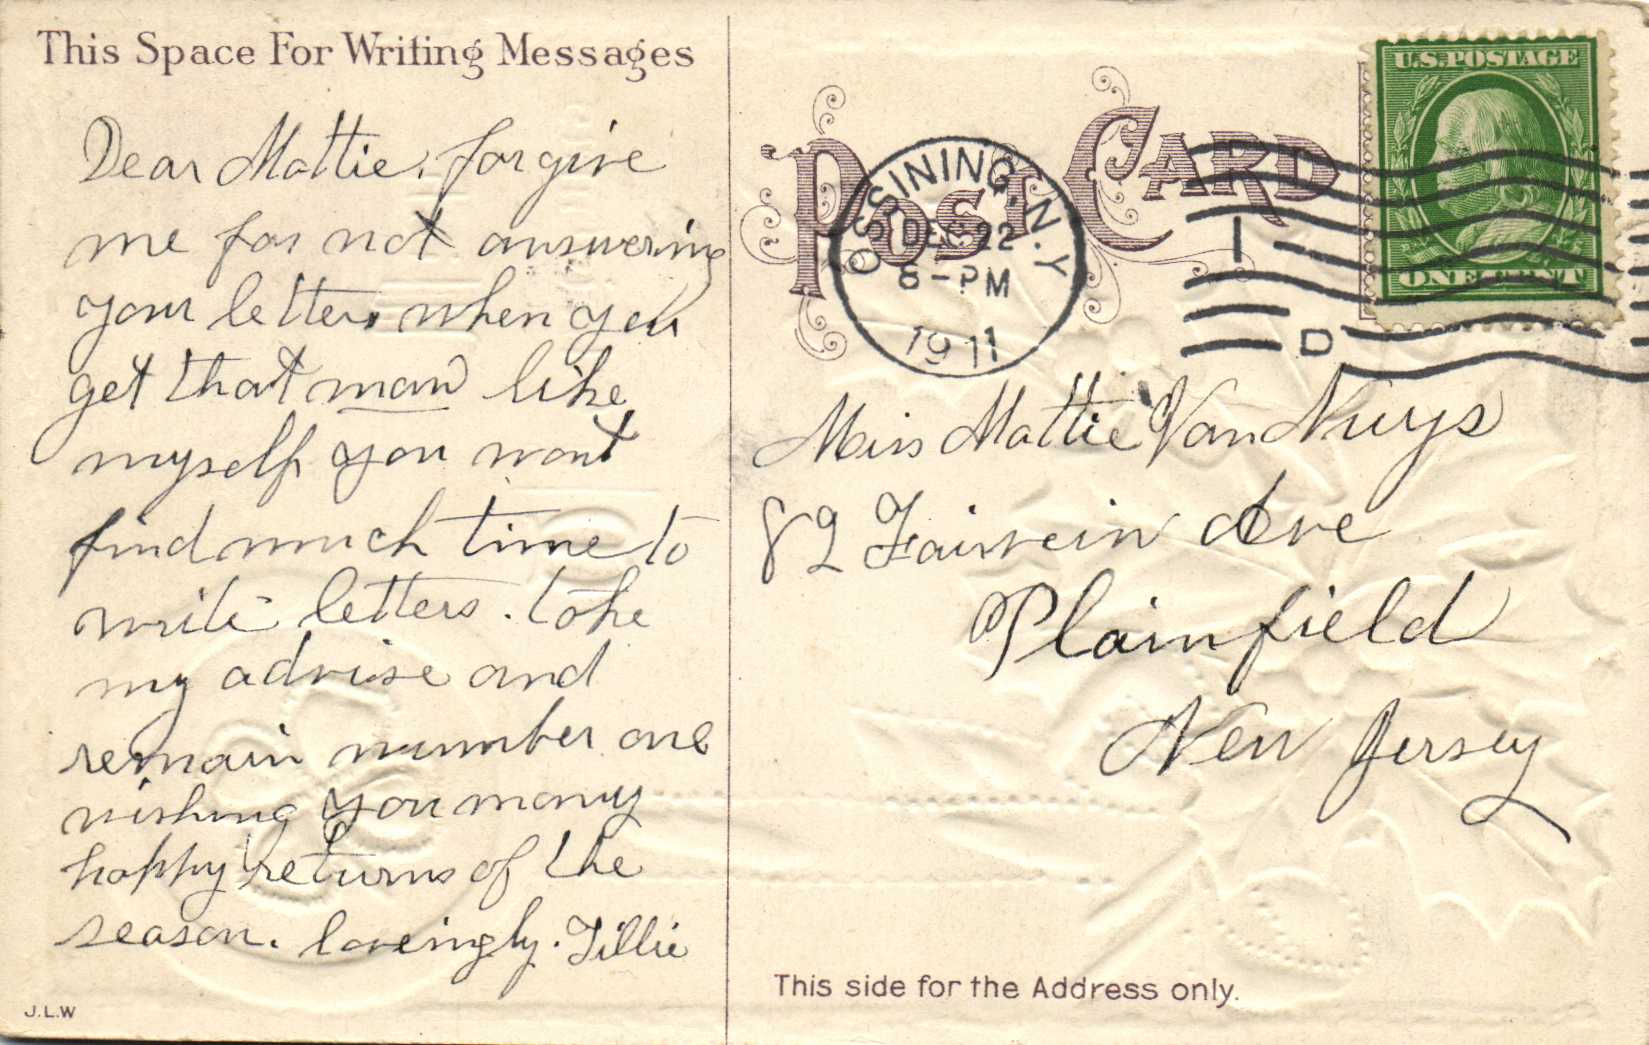 This Space For Writing Messages
Dear Mattie. forgive
me for not answering
your letter, when you
get that man like
myself you wont
find much time to
write letters. take
my advise and
remain number one
wishing you many
happy returns of the
season. lovingly. Tillie
J.L.W
POST CARD
OSSINING, N.Y.
DEC 22
8-PM
1911
D
U.S. POSTAGE
ONE CENT
Miss Mattie Van Nuys
82 Fairvein Ave
Plainfield
New Jersey
This side for the Address only.